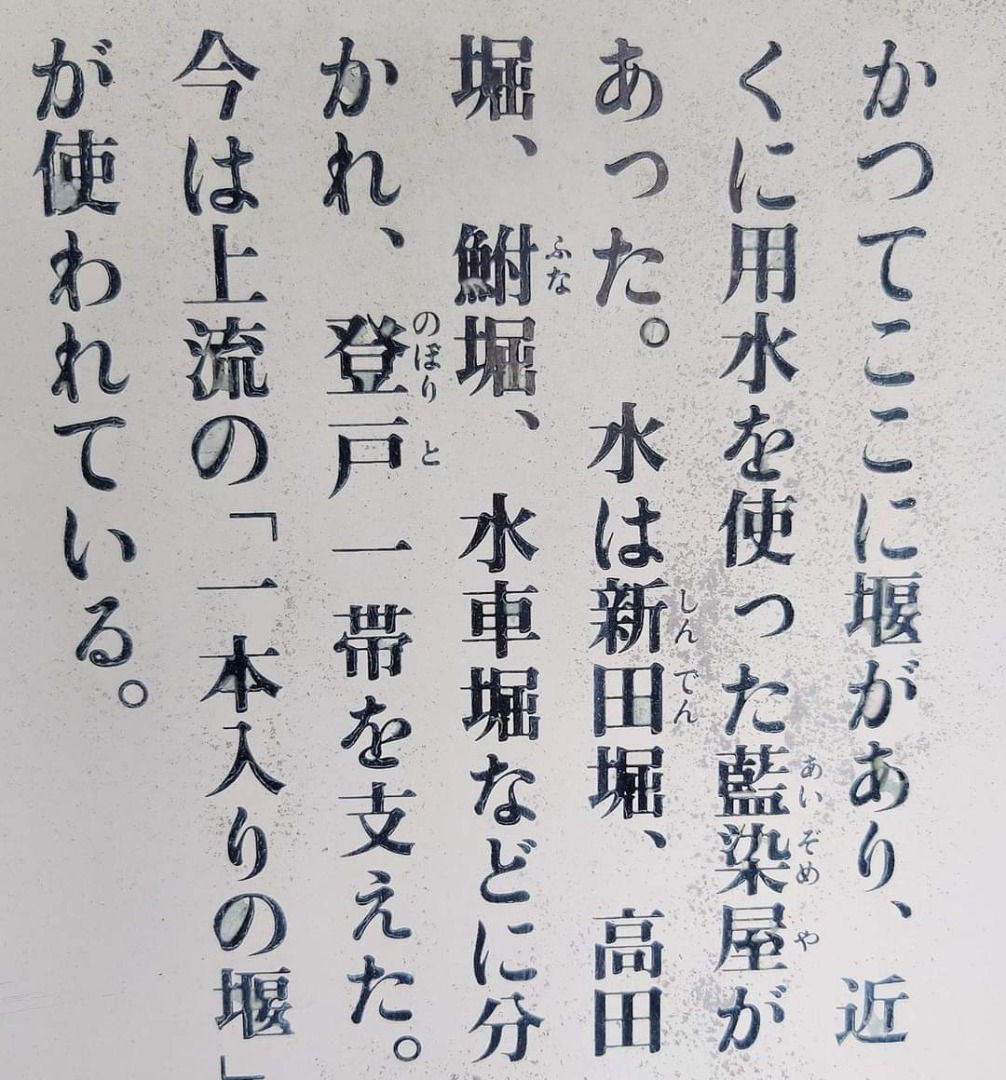 かつてここに堰があり、近
くに用水を使った藍染屋が
あった。水は新田堀、高田
堀、鮒堀、水車堀などに分
かれ、登戸一帯を支えた。
今は上流の「一本入りの堰」
が使われている。
あいぞめや
しんでん
ふな
のぼりと